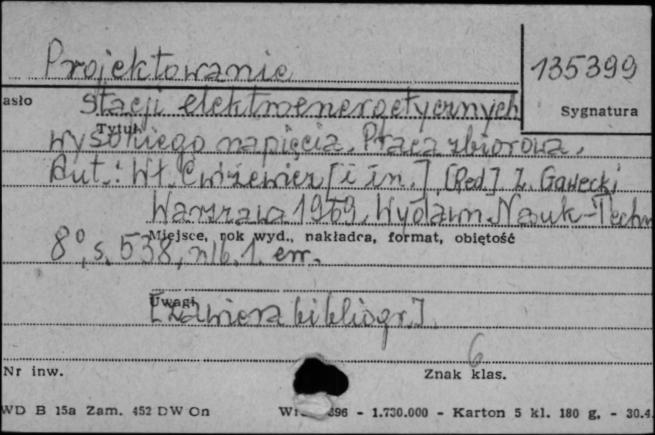 Projektowanie
135399
asło
stacji elektroenergetycznych
Sygnatura
Tytuł
wysokiego napięcia. Praca zbiorowa.
Aut.: Wł. Ćwirewicz [i in.], [Red.] Z. Gawecki
Warszawa 1969. Wydawn. Nauk-Techn
Miejsce, rok wyd., nakładca, format, objętość
8°, s. 538, nlb. 1. err.
Uwagi
[Zawiera bibliogr.]
6
Nr inw.
Znak klas.
WD B 15a Zam. 452 DW On
896 - 1.730.000 - Karton 5 kl. 180 g. - 30.4.